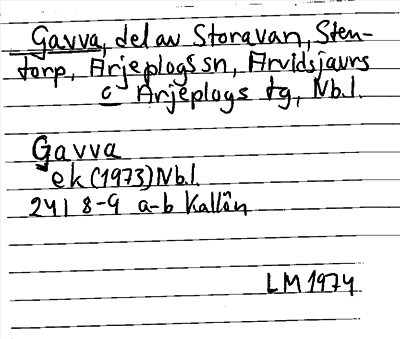 Gavva, del av Storavan, Sten-
torp, Arjeplogs sn, Arvidsjaurs
o Arjeplogs tg, Nb.l.
Gavva
ek (1973) Nb.l.
241 8-9 a-b Kallön
LM 1974